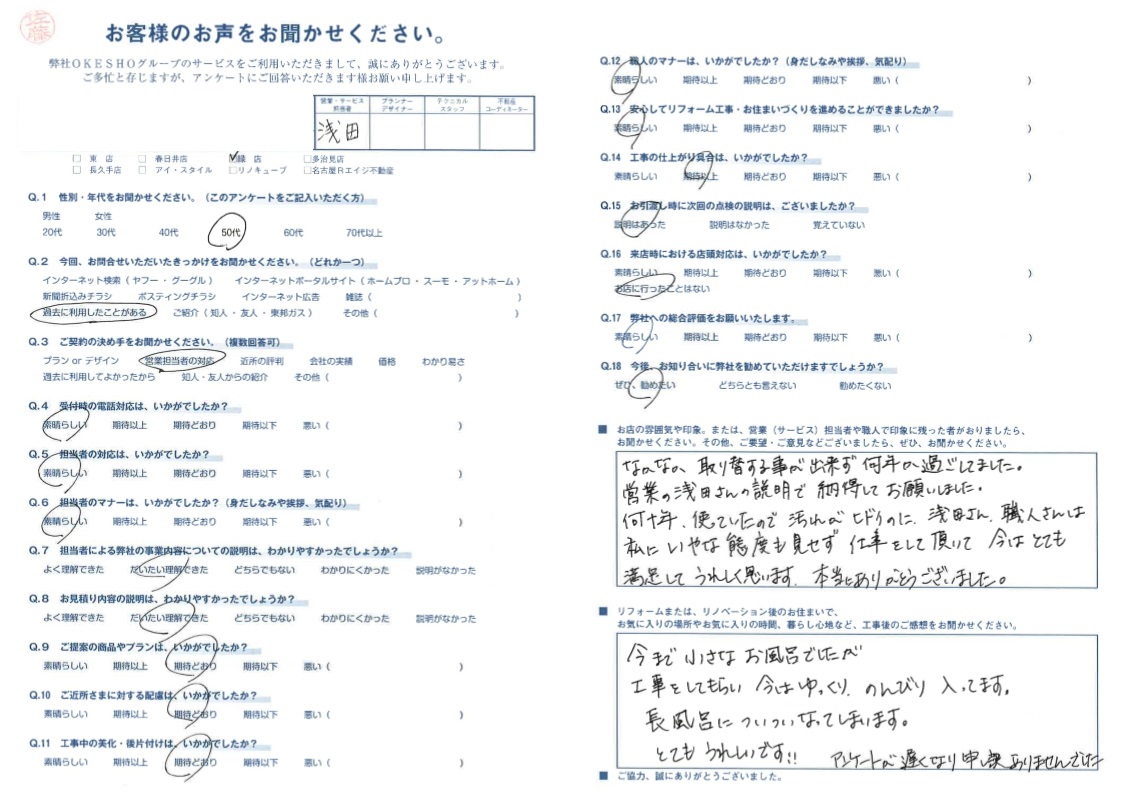 佐藤
お客様のお声をお聞かせください。
弊社OKESHOグループのサービスをご利用いただきまして、誠にありがとうございます。
ご多忙と存じますが、アンケートにご回答いただきます様お願い申し上げます。
営業・サービス担当者 プランナーデザイナー テクニカルスタッフ 不動産コーディネーター
浅田
□ 東 店 □ 春日井店 ☑緑 店 □多治見店
□ 長久手店 □ アイ・スタイル □リノキューブ □名古屋Rエイジ不動産
Q.1 性別・年代をお聞かせください。(このアンケートをご記入いただく方)
男性 女性
20代 30代 40代 50代 60代 70代以上
Q.2 今回、お問合せいただいたきっかけをお聞かせください。(どれか一つ)
インターネット検索(ヤフー・グーグル) インターネットポータルサイト(ホームプロ・スーモ・アットホーム)
新聞折込みチラシ ポスティングチラシ インターネット広告 雑誌( )
過去に利用したことがある ご紹介(知人・友人・東邦ガス) その他( )
Q.3 ご契約の決め手をお聞かせください。(複数回答可)
プラン or デザイン 営業担当者の対応 近所の評判 会社の実績 価格 わかり易さ
過去に利用してよかったから 知人・友人からの紹介 その他( )
Q.4 受付時の電話対応は、いかがでしたか?
素晴らしい 期待以上 期待どおり 期待以下 悪い( )
Q.5 担当者の対応は、いかがでしたか?
素晴らしい 期待以上 期待どおり 期待以下 悪い( )
Q.6 担当者のマナーは、いかがでしたか?(身だしなみや挨拶、気配り)
素晴らしい 期待以上 期待どおり 期待以下 悪い( )
Q.7 担当者による弊社の事業内容についての説明は、わかりやすかったでしょうか?
よく理解できた だいたい理解できた どちらでもない わかりにくかった 説明がなかった
Q.8 お見積り内容の説明は、わかりやすかったでしょうか?
よく理解できた だいたい理解できた どちらでもない わかりにくかった 説明がなかった
Q.9 ご提案の商品やプランは、いかがでしたか?
素晴らしい 期待以上 期待どおり 期待以下 悪い( )
Q.10 ご近所さまに対する配慮は、いかがでしたか?
素晴らしい 期待以上 期待どおり 期待以下 悪い( )
Q.11 工事中の美化・後片付けは、いかがでしたか?
素晴らしい 期待以上 期待どおり 期待以下 悪い( )
Q.12 職人のマナーは、いかがでしたか?(身だしなみや挨拶、気配り)
素晴らしい 期待以上 期待どおり 期待以下 悪い( )
Q.13 安心してリフォーム工事・お住まいづくりを進めることができましたか?
素晴らしい 期待以上 期待どおり 期待以下 悪い( )
Q.14 工事の仕上がり具合は、いかがでしたか?
素晴らしい 期待以上 期待どおり 期待以下 悪い( )
Q.15 お引渡し時に次回の点検の説明は、ございましたか?
説明はあった 説明はなかった 覚えていない
Q.16 来店時における店頭対応は、いかがでしたか?
素晴らしい 期待以上 期待どおり 期待以下 悪い( )
お店に行ったことはない
Q.17 弊社への総合評価をお願いいたします。
素晴らしい 期待以上 期待どおり 期待以下 悪い( )
Q.18 今後、お知り合いに弊社を勧めていただけますでしょうか?
ぜひ、勧めたい どちらとも言えない 勧めたくない
■ お店の雰囲気や印象。または、営業(サービス)担当者や職人で印象に残った者がおりましたら、
お聞かせください。その他、ご要望・ご意見などございましたら、ぜひ、お聞かせください。
なかなか 取り替する事が出来ず 何年か過ごしてました。
営業の浅田さんの説明で 納得してお願いしました。
何十年、使ていたので 汚れが ヒドイのに、浅田さん、職人さんは
私にいやな態度も見せず 仕事をして頂いて 今は とても
満足して うれしく思います。本当にありがとうございました。
■ リフォームまたは、リノベーション後のお住まいで、
お気に入りの場所やお気に入りの時間、暮らし心地など、工事後のご感想をお聞かせください。
今まで 小さな お風呂でしたが
工事をしてもらい 今は ゆっくり、のんびり 入ってます。
長風呂に ついつい なってしまいます。
とても うれしいです!!
アンケートが 遅くなり 申し訳ありませんでした
■ ご協力、誠にありがとうございました。